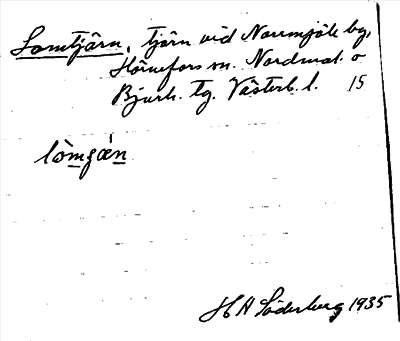 Lomtjärn, tjärn vid Norrmjöle by,
Hörnefors sn. Nordmal. o
Bjurh. tg. Västerb. l. 15
lòmgæ̀n
H A Söderberg 1935